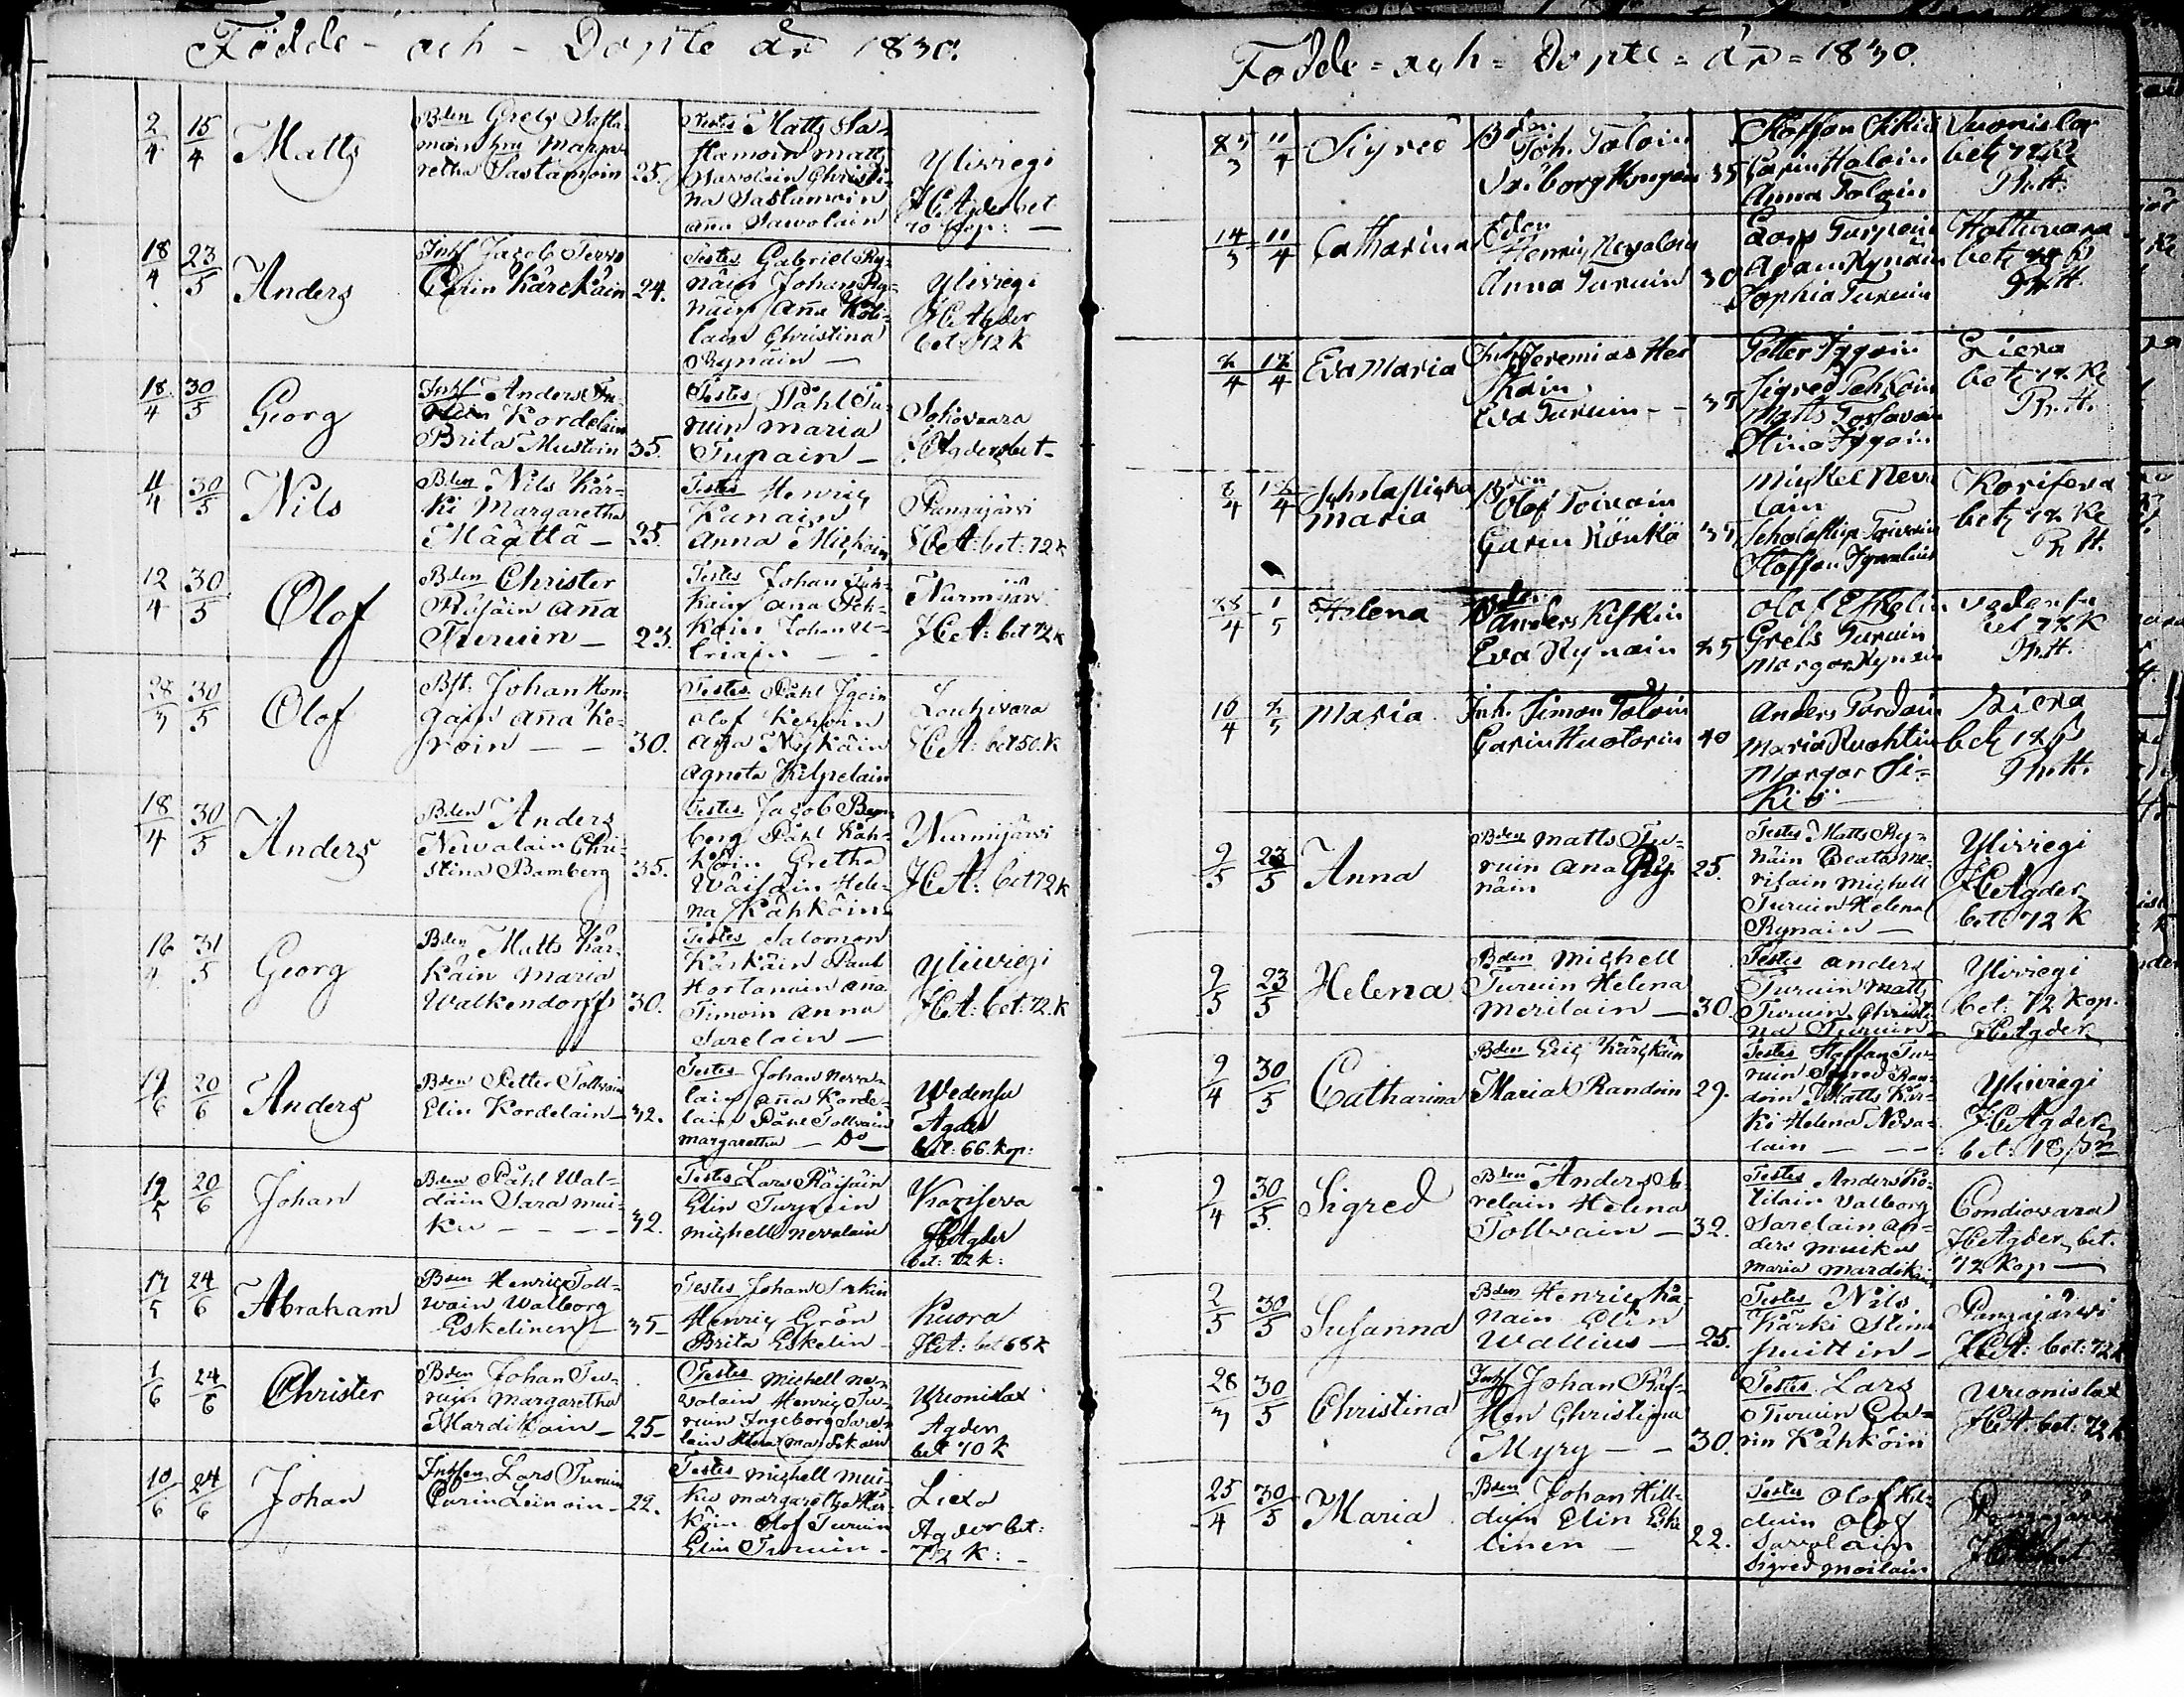 Födde - och - Döpte år 1830.
2/4 15/4 Matts
Bden Grels Sasta-
moin hru Marga-
retha Sastamoin 25.
Testes Matts Sa-
stamoin Matts
Savolain Christi-
na Sastamoin
Aña Sawolain
Yliviegi
HCAgder bet
70 kop: —
18/4 23/5 Anders
Inhs Jacob Tervo
Carin Kärckäin 24.
Testes Gabriel Ry-
näin Johan Ry-
näin Aña Koti-
lain Christina
Rynäin —
Yliviegi
HCAgder
bet 72 k
18/4 30/5 Georg
Inhs Anders
Kordelain
Brita Mustoin 35.
Testes Påhl Tu-
ruin Maria
Turpain —
Sokovaara
Agder bet —
11/4 30/5 Nils
Bden Nils Kär-
ki Margaretha
Määttä — 25.
Testes Henric
Kanain
Anna Michoin
Pangajärvi
HCA: bet: 72 k
12/4 30/5 Olof
Bden Christer
Räsäin Aña
Turuin — 23.
Testes Johan
kain Aña Peh-
koin Johan U-
Nurmijärvi
HCA: bet 72 k
28/3 30/5 Olof
Bst. Johan Hon-
gain Aña Ke-
roin — — 30.
Testes Påhl Igoin
Olof Kehoin
Aña Nykäin
Agneta Kilpelain
Louhivara
HCA: bet 50. k
18/4 30/5 Anders
Bden Anders
Nevalain Chri-
stina Bamberg 35.
Testes Jacob Bam-
berg Påhl Käh-
köin Gretha
Wäisäin Hele-
na Kähköin
Nurmijärvi
HCA: bet 72 k
16/4 31/5 Georg
Bden Matts Kär-
käin Maria
Walkendorff 30.
Testes Salomon
Kärkäin Paul
Hortanain Ana
Timoin Anna
Sarelain —
Yliviegi
HCA: bet: 72. k
20/6 Anders
Bden Petter Tollvain
Elin Kordelain — 32.
Testes Johan Neva-
lain Aña Korde-
lain Påhl Tollvain
Margaretha — Do —
Wedensu
Agder
bet: 66. kop:
19/5 20/6 Johan
Bden Påhl Wal-
däin Sara Mui-
ku — — — 32.
Testes Lars Räisäin
Elin Turpein
Michell Nevalain
Koriseva
HCAgder
bet: 72 k:
17/5 24/6 Abraham
Bden Henric Toll-
wain Walborg
Eskelinen — 35 —
Testes Johan Sorkin
Henric Grön
Brita Eskelin —
Kuora
HCA: bet 68 k
1/6 24/6 Christer
Bden Johan Tu-
ruin Margaretha
Mardikain — 25 —
Testes Michell Ne-
valain Henric Tu-
ruin Ingeborg Sare-
lain Stina Mardikain
Uronislax
Agder
bet 70 k
10/6 24/6 Johan
Inhsen Lars Turuin
Carin Leinoin — 22.
Testes Michell Mui-
ku Margaretha Kär-
käin Olof Turuin
Elin Turuin —
Liexa
Agder bet:
72 k: —
Födde = och = Döpte = år = 1830.
25/3 11/4 Sigred
Bden
Joh. Toloin
Walborg Hongoin 35
Staffan Sikiö
Carin Holoin
Anna Toloin
Vuonislax
bet 72 K
Pr. H.
14/3 11/4 Catharina
Bden
Henric Nevalain
Anna Turuin 30
Lars Turpein
Adam Rynäin
Sophia Turuin
Hattuvara
Pr. H.
2/4 12/4 Eva Maria
Inh Jeremias Her
Eva Turuin - - 35
Petter Iggoin
Sigred Pehkoin
Matts
Stina Iggoin
Liexa
bet 72 K
Pr. H.
8/4 12/4 Scholastica
Maria
Bden
Olof Toivain
Carin Könkö 35
Michel Neva
lain
Scholastica Toivain
Staffan
Koriseva
bet 72 K
Pr H.
28/4 1/5 Helena
Bden
Anders Kiskin
Eva Rynäin 25
Olof Eskelin
Grels Turuin
Margar Rynäin
Vedensu
bet 72 K
Pr. H.
10/4 2/5 Maria
Inh. Simon Toloin
Carin Huotarin 40
Anders Pordain
Maria Ruohtin
Margar Si-
kiö
Liexa
Pr. H.
9/5 23/5 Anna
Bden Matts Tu-
ruin Ana Ry- 25.
näin
Testes Matts Ry-
näin Beata Me-
riläin Michell
Turuin Helena
Rynäin —
Yliviegi
HCAgder
bet 72 k
9/5 23/5 Helena
Bden Michell
Turuin Helena
Merilain — 30.
Testes Anders
Turuin Matts
Turuin Christi-
na Turuin —
Yliviegi
bet: 72 kop.
HCAgder
9/4 30/5 Catharina
Bden Eric Kärckäin
Maria Randoin 29.
Testes Staffan Tu-
ruin Sigred Ran-
doin Matts Kär-
ki Helena Neva-
lain — — —
Yliviegi
HCAgder
bet: 18
9/4 30/5 Sigred
Bden Anders Sa-
relain Helena
Tollvain — 32.
Testes Anders Ko-
tilain Valborg
Sarelain An-
ders Muiku
Maria Mardikain
Condiovara
HCAgder bet.
72 kop —
2/5 30/5 Susanna
Bden Henric Ka-
nain Elin
Wallius — 25.
Testes Nils
Kärki Stina
Puittin —
Pangajärvi
HCA: bet: 72 k
28/3 30/5 Christina
Inhs Johan
Christina
Myry — — 30.
Testes Lars
Turuin Ca-
rin Kähköin
Uronislax
HCA: bet: 72 k
25/4 30/5 Maria
Bden Johan Hill-
duin Elin Eske
linen — 22.
Testes Olof Hil-
duin Olof
Savolain
Sigred Moilain